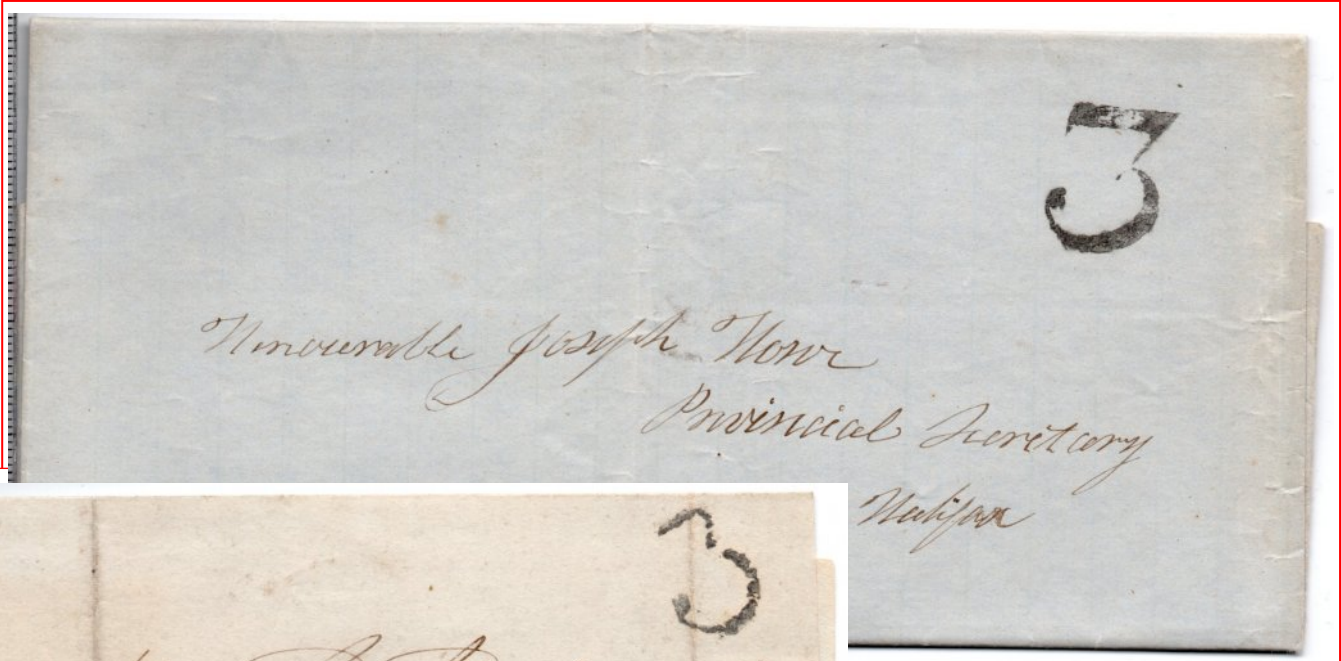 3
Honourable Joseph Howe
Provincial Secretary
Halifax
3